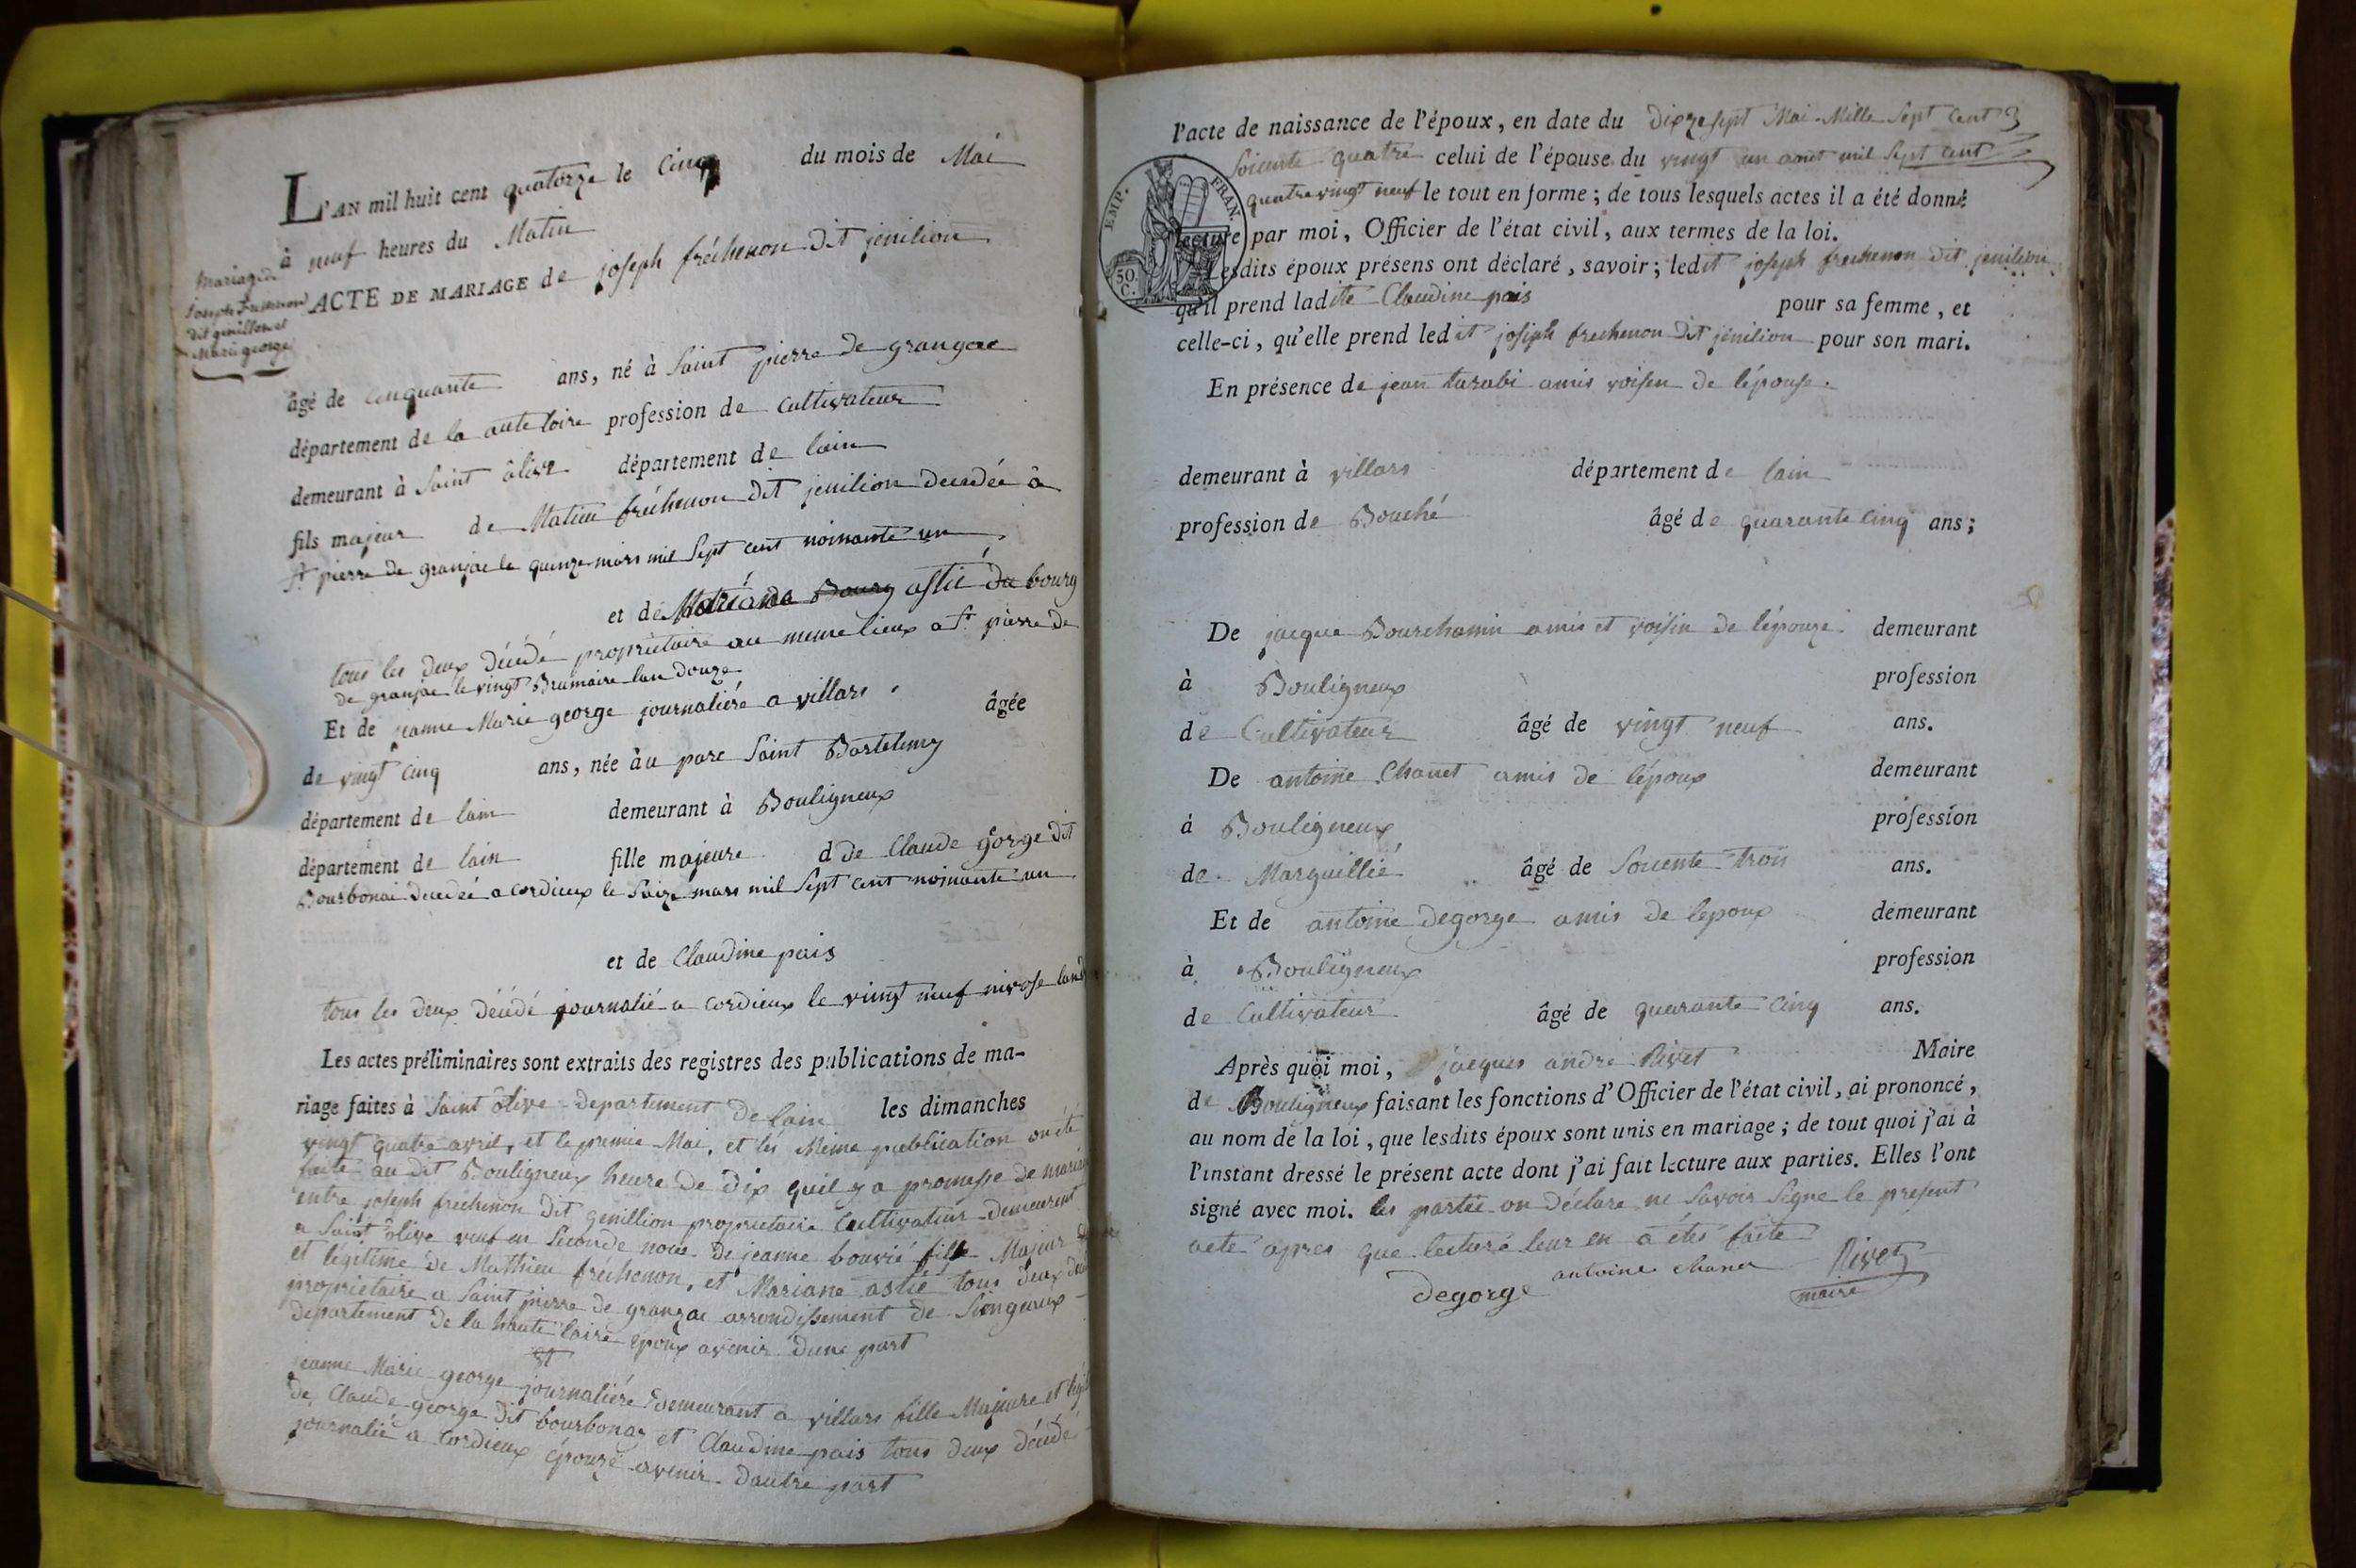 L'AN mil huit cent quatorze le Cinq du mois de Mai
à neuf heures du Matin
Mariage de
Joseph Frechenon
dit genillon et
Marie george
ACTE DE MARIAGE de joseph fréchenon dit jenilion
âgé de cinquante ans, né à Saint pierre de grangeac
département de la aute loire profession de Cultivateur
demeurant à Saint ôlive département de lain
fils majeur de Matieu fréchenon dit jenilion decedée â
St pierre de granjac le quinze mars mil Sept cent noinante un
et de Mariane Bourg astié du bourg
tous les deux décédé propriétaire au meme lieux a St pierre de
de granjac le vingt Brumaire lan douze
Et de jeanne Marie george journaliére a villars âgée
de vingt cinq ans, née à au parc Saint Bartelemy
département de lain demeurant à Bouligneux
département de lain fille majeure d de Claude gorge dit
Bourbonai decedée a cordieux le Saize mars mil Sept cent noinante un
et de Claudine pais
tous les deux décédé journalié a cordieux le vingt neuf nivose lan
Les actes préliminaires sont extraits des registres des publications de ma-
riage faites à Saint ôlive departement de lain les dimanches
vingt quatre avril, et le premie Mai, et les Meme publication on été
faite au dit Bouligneux heure de dix queil y a promesse de mariage
entre joseph frechenon dit genillion proprietaire Cultivateur demeurent
a Saint ôlive veuf en Seconde noce de jeanne bouvié fils Majeur
et légitime de Mathieu fréchenon, et Mariane astié tous deux
proprietaire a Saint pierre de granzac arrondissement de Singeaux
departement de la haute loire epoux avenir dune part
et
jeanne Marie george journaliére demeurant a villars fille Majeure et
de Claude george dit bourbonay et Claudine pais tous deux décédé
journalié a Cordieux épouze avenir dautre part
l'acte de naissance de l'époux, en date du dixzesept Mai Mille Sept Cent
Soicente quatre celui de l'épouse du vingt un aout mil Sept Cent
quatrevingt neuf le tout en forme ; de tous lesquels actes il a été donné
EMP. FRAN
50
C.
lecture par moi, Officier de l'état civil, aux termes de la loi.
Lesdits époux présens ont déclaré, savoir ; ledit joseph frechenon dit jenilion
qu'il prend ladite Claudine pais pour sa femme, et
celle-ci, qu'elle prend ledit joseph frechenon dit jenilion pour son mari.
En présence de jean tarabi amis voisen de lépouse.
demeurant à villars département de lain
profession de Bouché âgé de quarante cinq ans ;
De jacque Bourchanin amis et voisin de lépouze demeurant
à Bouligneux profession
de Cultivateur âgé de vingt neuf ans.
De antoine Chanet amis de lépoux demeurant
à Bouligneux profession
de Marguillié âgé de Soicente trois ans.
Et de antoine degorge amis de lepoux demeurant
à Bouligneux profession
de Cultivateur âgé de quarante Cinq ans.
Après quoi moi, jacques andré Rivet Maire
de Bouligneux faisant les fonctions d'Officier de l'état civil, ai prononcé,
au nom de la loi, que lesdits époux sont unis en mariage ; de tout quoi j'ai à
l'instant dressé le présent acte dont j'ai fait lecture aux parties. Elles l'ont
signé avec moi. les partie on déclare ne Savoir Signe le present
acte apres que lecture leur en a étés faite
Degorge antoine chane Rivet
maire